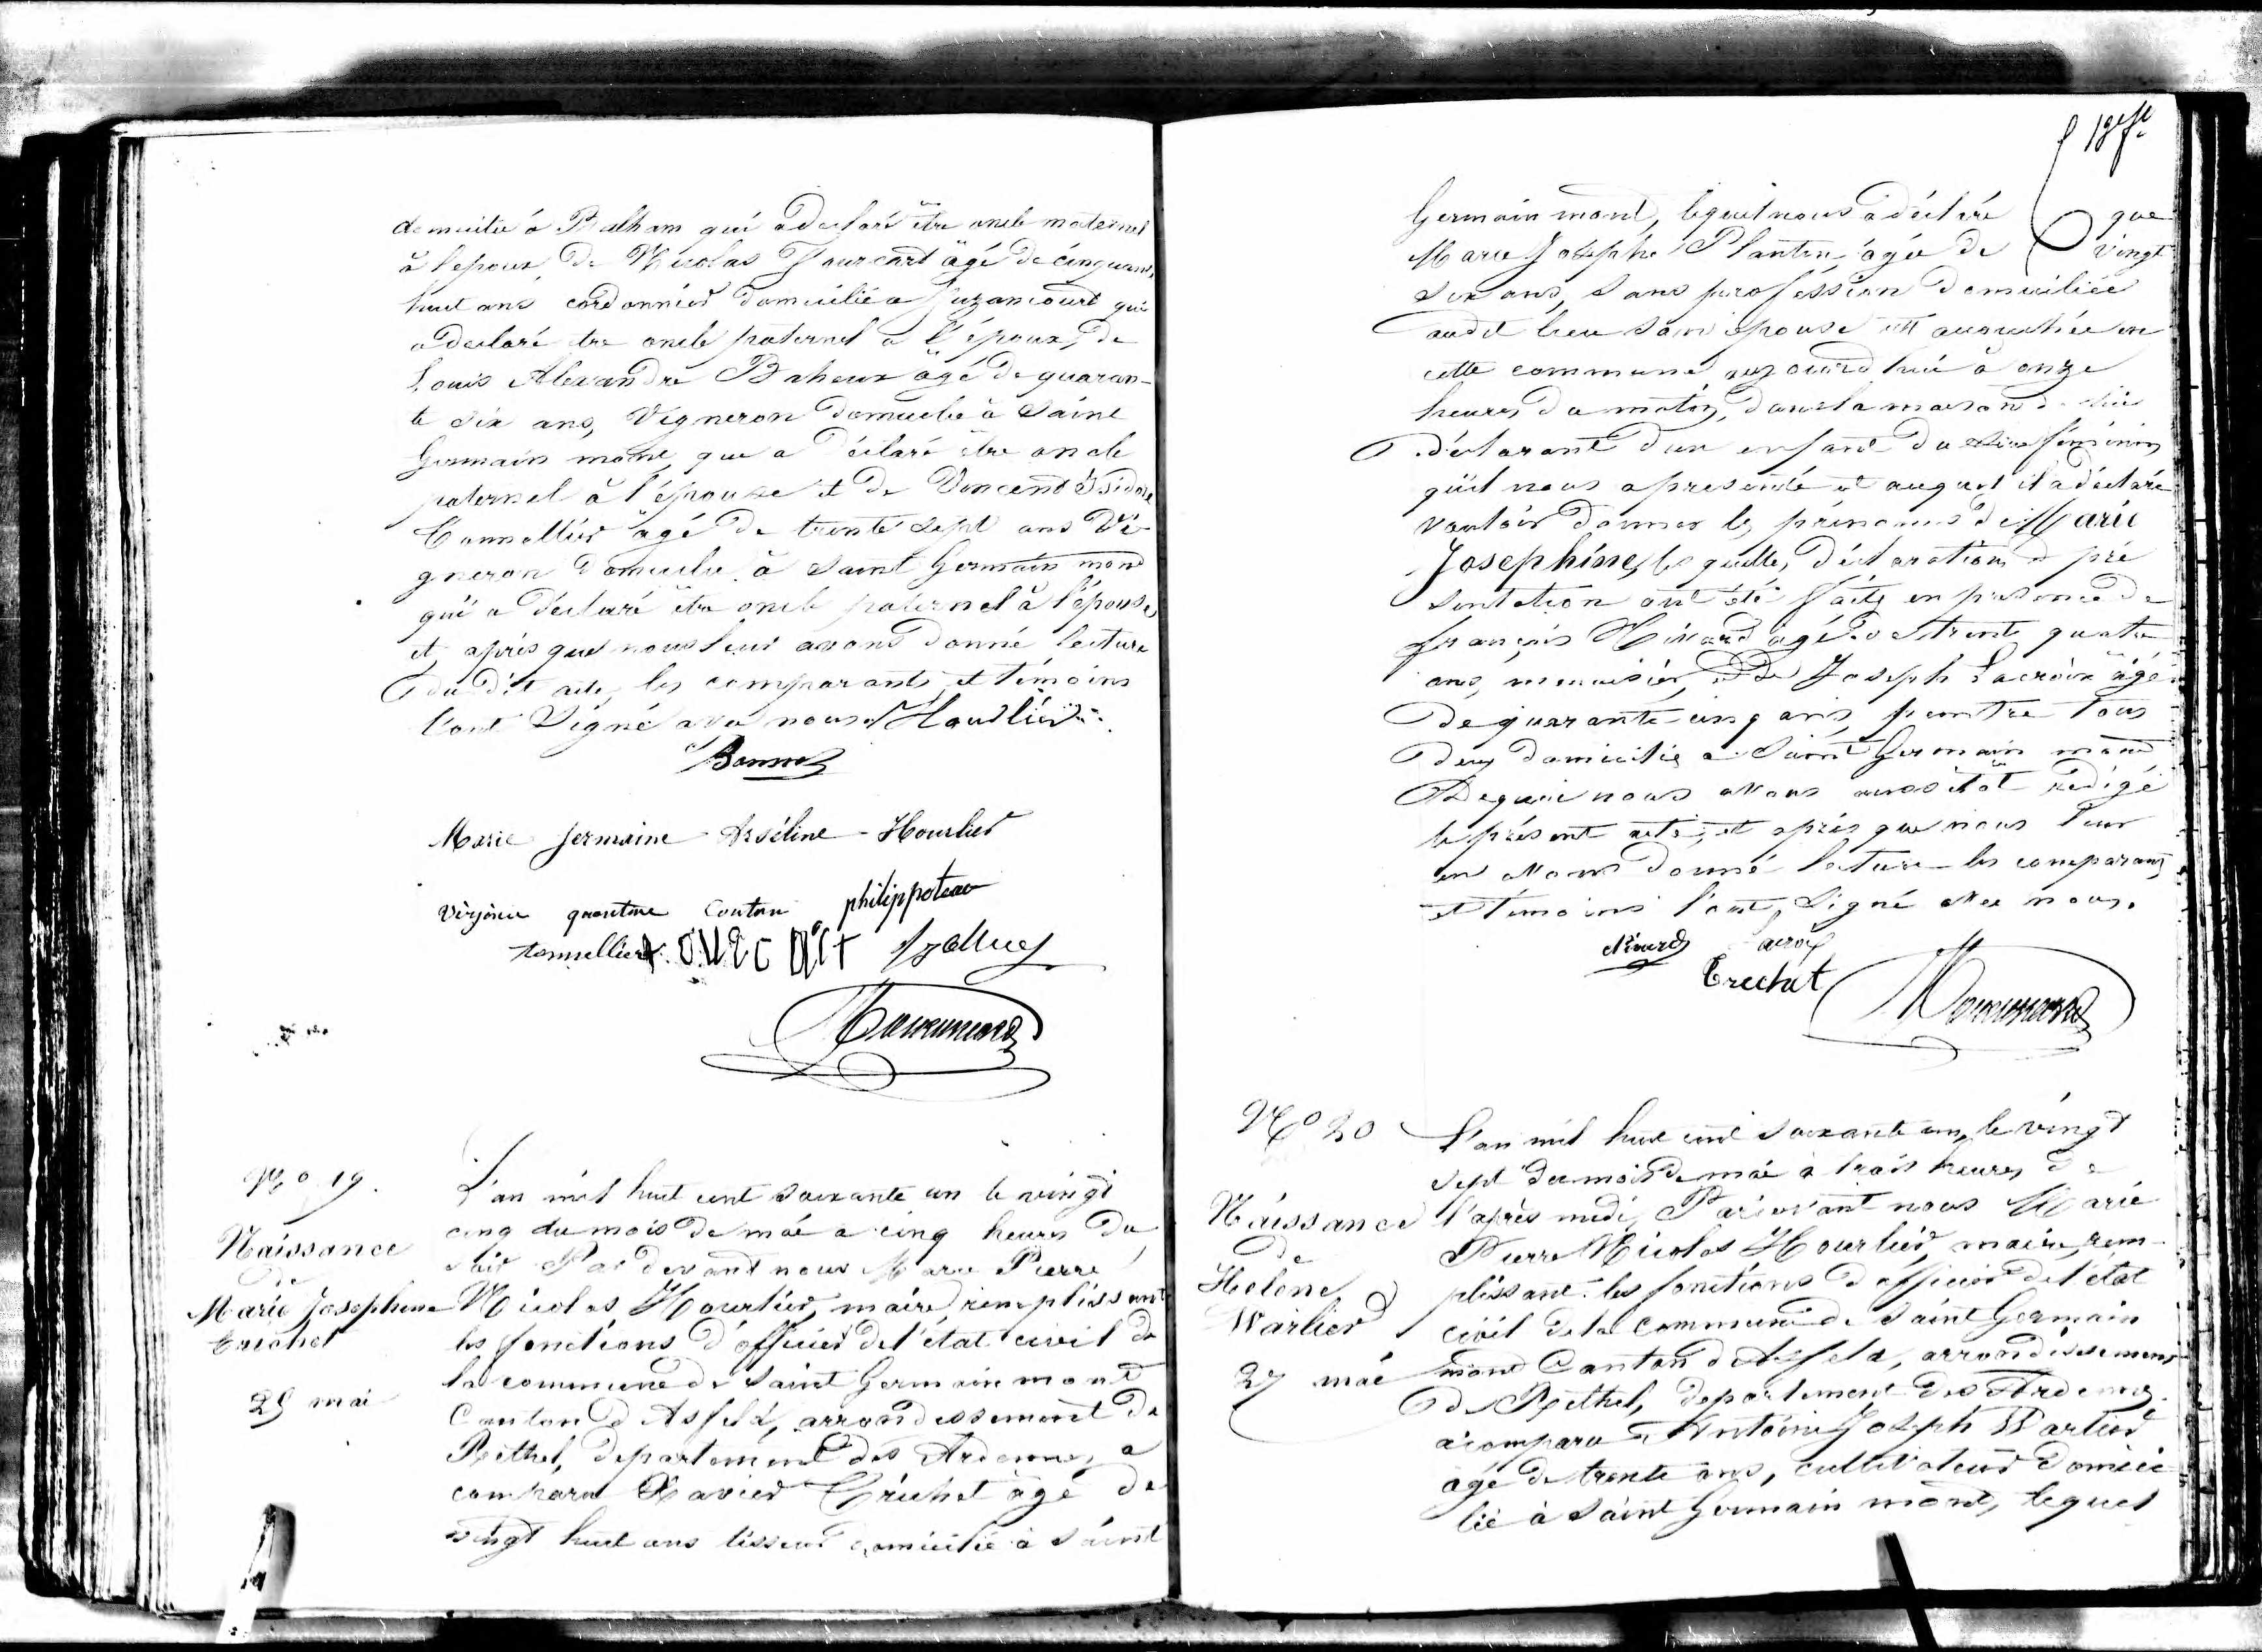 domicilié à Balham qui a déclaré être oncle maternel
à l'epoux, de Nicolas Fourcart âgé de cinquante
huit ans cordonnier domicilié a Juzancourt qui
a declaré être oncle paternel a l'époux, de
Louis Alexandre Baheux âgé de quaran-
te six ans, Vigneron domicilié à Saint
Germain mont que a déclaré être oncle
paternel à l'épouse et de Vincent Isidore
Tonnellier âgé de trente sept ans Vi-
gneron domicilié à Saint Germain mont
qui a déclaré être oncle paternel à l'épouse
et après que nous leur avons donné lecture
du dit acte, les comparants et témoins
l'ont Signé avec nous Hourlier
Marie Germaine Arséline Hourlier
Virginie quentine philippoteau
tonnellier
No 19.
Naissance
de
Marie Josephine
Trichet
25 mai
L'an mil huit cent soixante un le vingt
cinq du mois de mai a cinq heures du
soir Par devant nous Marie Pierre
Nicolas Hourlier, maire remplissant
les fonctions d'officier de l'état civil de
la commune de Saint Germain mont
Canton d'Asfeld, arrondissement de
Réthel, departement des Ardennes, a
comparu Xavier Tréchet âgé de
vingt huit ans tisseur domicilié à Saint
Germain mont, lequel nous a déclaré que
Marie Josephe Plantin, âgée de vingt
six ans, Sans profession domiciliée
audit lieu son épouse est accouchée en
cette commune aujourd'hui à onze
heures du matin, dans la maison du
déclarant d'un enfant du sexe féminin
qu'il nous a presenté et auquel il a déclaré
vouloir donner les prénoms de Marie
Josephine, les quelles déclaration et pré
sentation ont été faites en presence de
françois Nivard âgé de trente quatre
ans, menuisier, et de Joseph Lacroix âgé
de quarante cinq ans, peintre tous
deux domiciliés a Saint Germain mont
De quoi nous avons aussitôt rédigé
le présent acte, et après que nous leur
en avons donné lecture les comparants
et témoins l'ont Signé avec nous.
Trechet
No 20
Naissance
de
Helène
Warlier
27 mai
L'an mil huit cent soixante un, le vingt
sept du mois de mai à trois heures de
l'après midi, Pardevant nous Marie
Pierre Nicolas Hourlier, maire, rem-
plissant les fonctions d'officier de l'état
civil de la commune de Saint Germain
mont Canton d'Asfeld, arrondissement
de Réthel, departement des Ardennes.
a comparu Antoine Joseph Warlier
âgé de trente ans, cultivateur domici
lié à Saint Germain mont, lequel